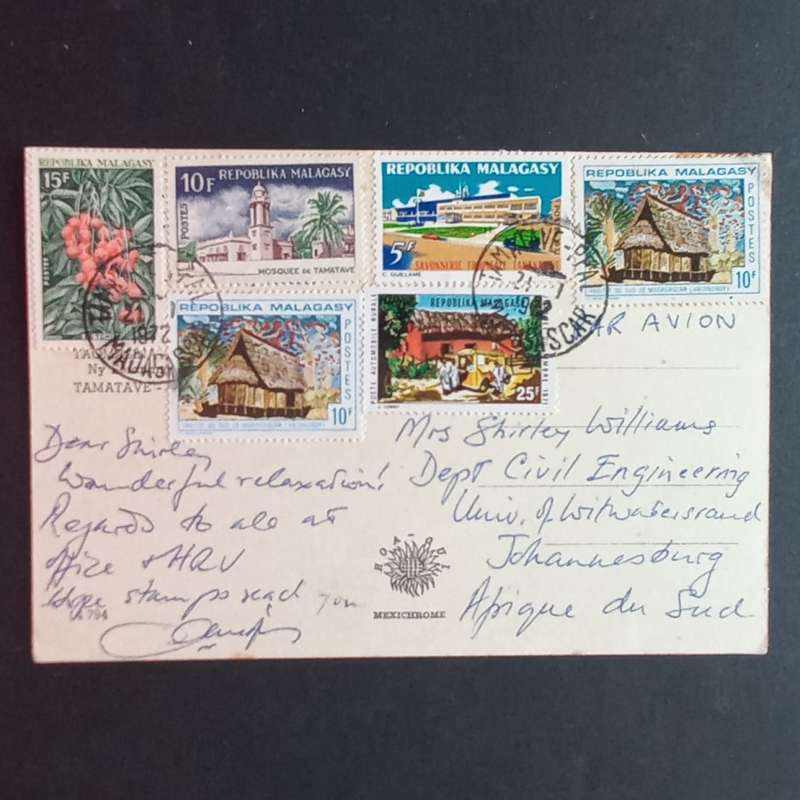 REPOBLIKA MALAGASY
15F
POSTES
10F
REPOBLIKA MALAGASY
POSTES
MOSQUEE DE TAMATAVE
REPOBLIKA MALAGASY
5F
SAVONNERIE TROPICALE TANANARIVE
REPOBLIKA MALAGASY
POSTES
10F
REPOBLIKA MALAGASY
POSTES
10F
POSTE AUTOMOBILE RURALE
REPOBLIKA MALAGASY
25F
21
1972
MADAGASCAR
TAMATAVE-PPAL
21 - 1
1972
MADAGASCAR
Ny
TAMATAVE -
PAR AVION
Dear Shirley
Wonderful relaxation!
Regards to all at
office + HRV
Hope stamps reach you
794
HOA-QUI
MEXICHROME
Mrs Shirley Williams
Dept Civil Engineering
Univ. of Witwatersrand
Johannesburg
Afrique du Sud